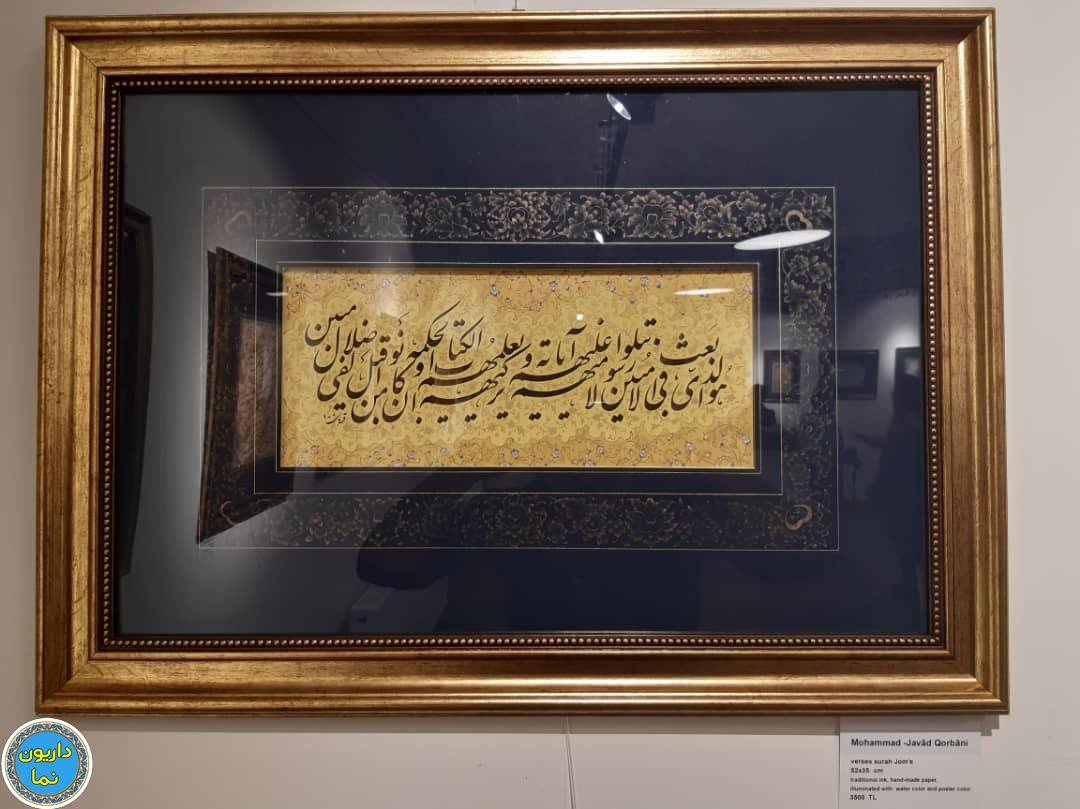 هوالذی بعث فی الامیین رسولا منهم یتلوا علیهم آیاته و یزکیهم و یعلمهم الکتاب و الحکمه و ان کانوا من قبل لفی ضلال مبین
Mohammad -Javâd Qorbâni
verses surah Jom'e
52x35 cm
traditional ink, hand-made paper,
illuminated with: water color and poster color
3500 TL
داریون
نما